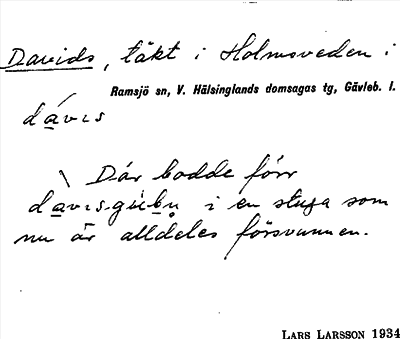 Davids, täkt i Holmsveden i
Ramsjö sn, V. Hälsinglands domsagas tg, Gävleb. l.
dávıs
\ Där bodde förr
davıs-gúbn̥ i en stuga som
nu är alldeles försvunnen.
LARS LARSSON 1934